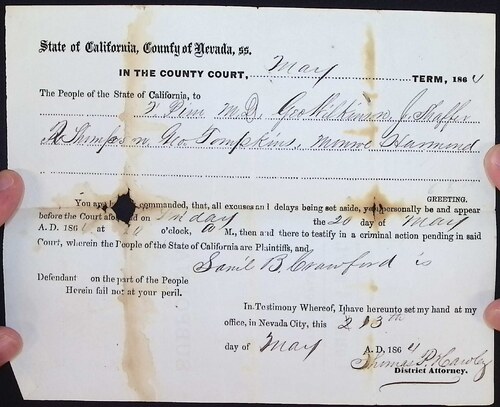 State of California, County of Nevada, ss.
IN THE COUNTY COURT, May TERM, 1864
The People of the State of California, to
F Penn M.D, Geo Wilkinson J. Shaffer
R Simpson Geo. Tompkins, Monroe Hammond
GREETING.
You are hereby commanded, that, all excuses and delays being set aside, you personally be and appear
before the Court aforesaid on Friday the 20 day of May
A. D. 186 at o'clock, A M., then and there to testify in a criminal action pending in said
Court, wherein the People of the State of California are Plaintiffs, and
Saml B. Crawford is
Defendant on the part of the People
Herein fail not at your peril.
In Testimony Whereof, I have hereunto set my hand at my
office, in Nevada City, this 13th
day of May A. D. 1864
Thomas P. Hawley
District Attorney.